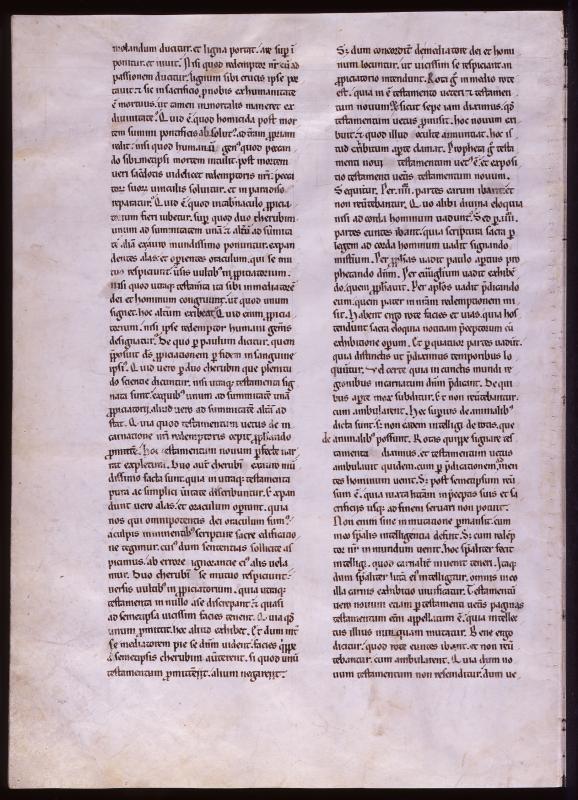 molandum ducitur. et ligna portat. are sup̄ ī
ponitur. et uiuit. Nisi quod redemptor nr̄ cū ad
passionem ducitur. lignum sibi crucis ipse por
tauit. & sic in sacrificio ꝓ nobis ex humanitate
ē mortuus. ut tamen immortalis maneret ex
diuinitate? Quid ē quod homicida post mor
tem summi pontificis absolutꝰ. ad terram ꝓpriam
redit. nisi quod humanū genꝰ quod peccan
do sibimetipsi mortem intulit. post mortem
ueri sacerdotis uidelicet redemptoris nr̄i. pecca
torum suorum uinculis soluitur. et in paradiso
reparatur? Quid ē quod in tabernaculo ꝓpicia
torium fieri iubetur. sup̄ quod duo cherubim.
unum ad summitatem unā & alterū ad summita
tē aliā ex auro mundissimo ponuntur. expan
dentes alas. et operientes oraculum. qui se mu
tuo respiciunt. uersis uultibꝰ in ꝓpiciatorium.
nisi quod utraqꝫ testamenta ita sibi in mediatore
dei et hominum congruunt. ut quod unum
signet. hoc alterum exibeat? Quid enim ꝓpicia
torium. nisi ipse redemptor humani generis
designatur? De quo ꝑ paulum dicitur. quem
ꝓposuit ds̄ ꝓpiciationem ꝑ fidem in sanguine
ipsiꝰ. Quid uero ꝑ duo cherubim que plenitu
do scientie dicuntur. nisi utraqꝫ testamenta sig
nata sunt. ex quibꝰ unum ad summitatē unā
ꝓpiciatorii. aliud uero ad summitatē alterā ad
stat. Quia quod testamentum uetus de in
carnatione nr̄i redemptoris cepit ꝓphando
ꝓmittere. hoc testamentum nouum ꝑfecte nar
rat expletum. Duo autē cherubī ex auro mū
dissimo facta sunt. quia in utraqꝫ testamenta
pura ac simplici ueritate describuntur. Expan
dunt uero alas. et oraculum operiunt. quia
nos qui omnipotentis dei oraculum sumꝰ.
a culpis imminentibꝰ scripture sacre edificatio
ne tegimur. cuiꝰ dum sententias sollicite as
picimus. ab errore ignorantie eiꝰ alis uela
mur. Duo cherubī se mutuo respiciunt
uersis uultibꝰ in ꝓpiciatorium. quia utraqꝫ
testamenta in nullo a se discrepant. & quasi
ad semetipsa uicissim facies tenent. Quia qd̄
unum ꝓmittit. hoc aliud exhibet. Et dum inter
se mediatorem pie se dum uident. facies quippe
a semetipsis cherubim auerterent. si quod unū
testamentum ꝓmitteret. alium negaret.
Sꝫ dum concorditer de mediatore dei et homi
num locuntur. ut uicissim se respiciant in
ꝓpiciatorio intendunt. Rota ergo in medio rote
est. quia in ē testamento ueteri & testamen
tum nouum. Et sicut sepe iam diximus. qd̄
testamentum uetus ꝓmisit. hoc nouum exi
buit. & quod illud occulte annuntiat. hoc is
tud exibitum aperte clamat. Propheta ergo testa
menti noui testamentum uetꝰ ē. et exposi
tio testamenti ueteris testamentum nouum.
Sequitur. Per .iiii. partes earum ibant. et
non reuertebantur. Quo alibi diuina eloquia
nisi ad corda hominum uadunt? Sed ꝑ .iiii.
partes euntes ibant. quia scriptura sacra ꝑ
legem ad corda hominum uadit signando
misterium. Per ꝓphetas uadit paulo apertius pro
phetando dn̄m. Per euangelium uadit exhibē
do. quem ꝓphauit. Per apl̄os uadit p̄dicando
eum. quem pater in nr̄am redemptionem mi
sit. Habent ergo rote facies et uias. quia hos
tendunt sacra eloquia notitiam preceptorum cū
exhibitione operum. Et ꝑ quatuor partes uadit.
quia distinctis ut p̄diximus temporibus lo
quitur. Vel certe quia in cunctis mundi re
gionibus incarnatum dn̄m p̄dicant. De qui
bus aperte mox subditur. Et non reuertebantur.
cum ambularent. Hec superius de animalibꝰ
dicta sunt. sꝫ non eadem intelligi de rotis. que
de animalibꝰ possunt. Rotas quippe signare tes
tamenta diximus. et testamentum uetus
ambulauit quidem. cum ꝑ p̄dicationem in men
tes hominum uenit. Sꝫ post semetipsum reuer
sum ē. quia iuxta litteram in preceptis suis et sa
crificiis usqꝫ ad finem seruari non potuit.
Non enim sine inmutatione ꝑmansit. cum
in eo sp̄alis intelligentia defuit. Sꝫ cum redēp
tor nr̄ in mundum uenit. hoc sp̄aliter fecit
intelligi. quod carnaliter inuenit teneri. Itaqꝫ
dum sp̄aliter littera eiꝰ intelligitur. omnis in eo
illa carnis exhibitio uiuificatur. Testamentū
uero nouum etiam ꝑ testamenti ueteris paginas
testamentum eternū appellatum ē. quia intellec
tus illius nunquam mutatur. Bene ergo
dicitur. quod rote euntes ibant. et non reuer
tebantur. cum ambularent. Quia dum no
uum testamentum non rescinditur. dum ue